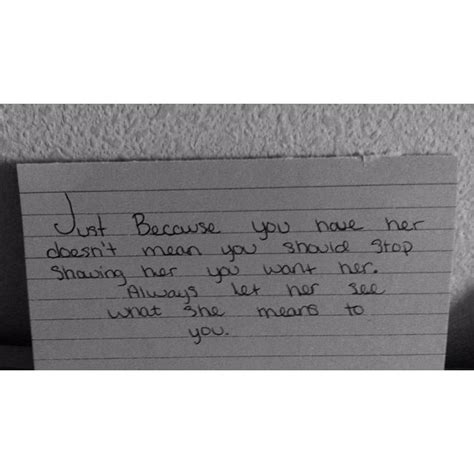 Just Because you have her
doesn't mean you should stop
showing her you want her.
Always let her see
what she means to
you.